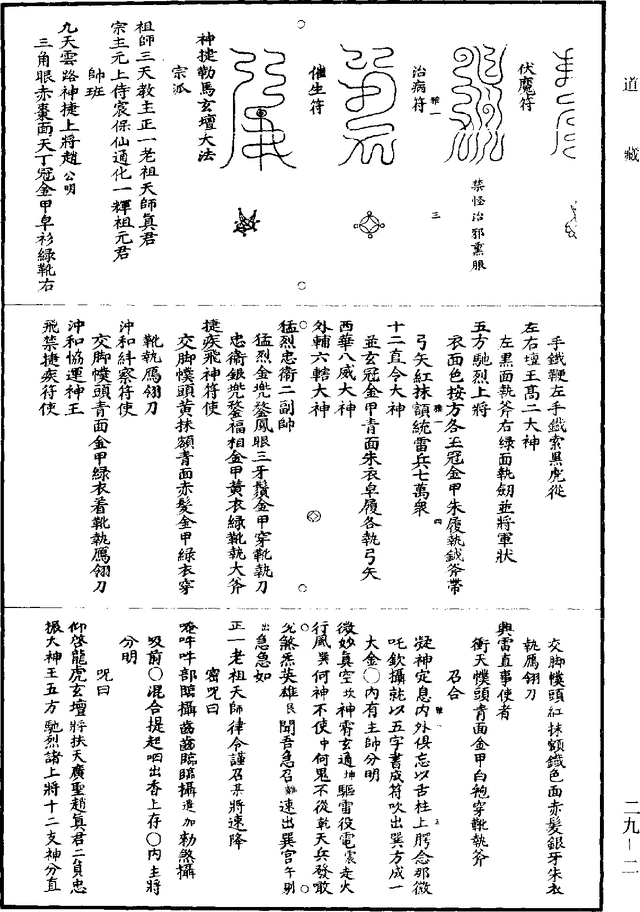 道藏
伏魔符
禁怪治邪熏服
雅一
三
治病符
催生符
神捷勒馬玄壇大法
宗派
祖師三天教主正一老祖天師真君
宗主元上侍宸保仙通化一輝祖元君
帥班
九天雲路神捷上將趙公明
三角眼赤棗面天丁冠金甲皁衫綠靴右
手鐵鞭左手鐵索黑虎從
左右壇王高二大神
左黑面執斧右綠面執劒並將軍狀
五方馳烈上將
衣面色按方各王冠金甲朱履執鉞斧帶
弓矢紅抹額統雷兵七萬衆
雅一
四
十二直令大神
並玄冠金甲青面朱衣皁履各執弓矢
西華八威大神
外輔六轄大神
猛烈忠衛二副帥
猛烈金兜鍪鳳眼三牙鬚金甲穿靴執刀
忠衛銀兜鍪福相金甲黃衣綠靴執大斧
捷疾飛神符使
交脚幞頭黃抹額青面赤髮金甲綠衣穿
靴執鴈翎刀
沖和糾察符使
交脚幞頭青面金甲綠衣着靴執鴈翎刀
沖和協運神王
飛禁捷疾符使
交脚幞頭紅抹額鐵色面赤髮銀牙朱衣
執鴈翎刀
興雷直事使者
衝天幞頭青面金甲白袍穿靴執斧
召合
凝神定息內外俱忘以舌柱上腭念那微
吒欽攝就以五字書成符吹出巽方成一
大金〇內有主帥分明
微妙真空坎神霄玄通坤驅雷役電震走火
行風巽何神不使中何鬼不從乾天兵發敢
兌煞炁英雄艮聞吾急召離速出巽宮午剔
出急急如
正一老祖天師律令謹召某將速降
密咒曰
唵吽吽部臨攝啇啇臨臨攝遣加勅煞攝
吸前〇混合提起呬出香上存〇內主將
分明
咒曰
仰啓龍虎玄壇將扶天廣聖趙真君二員忠
振大神王五方馳烈諸上將十二支神分直
二九—二